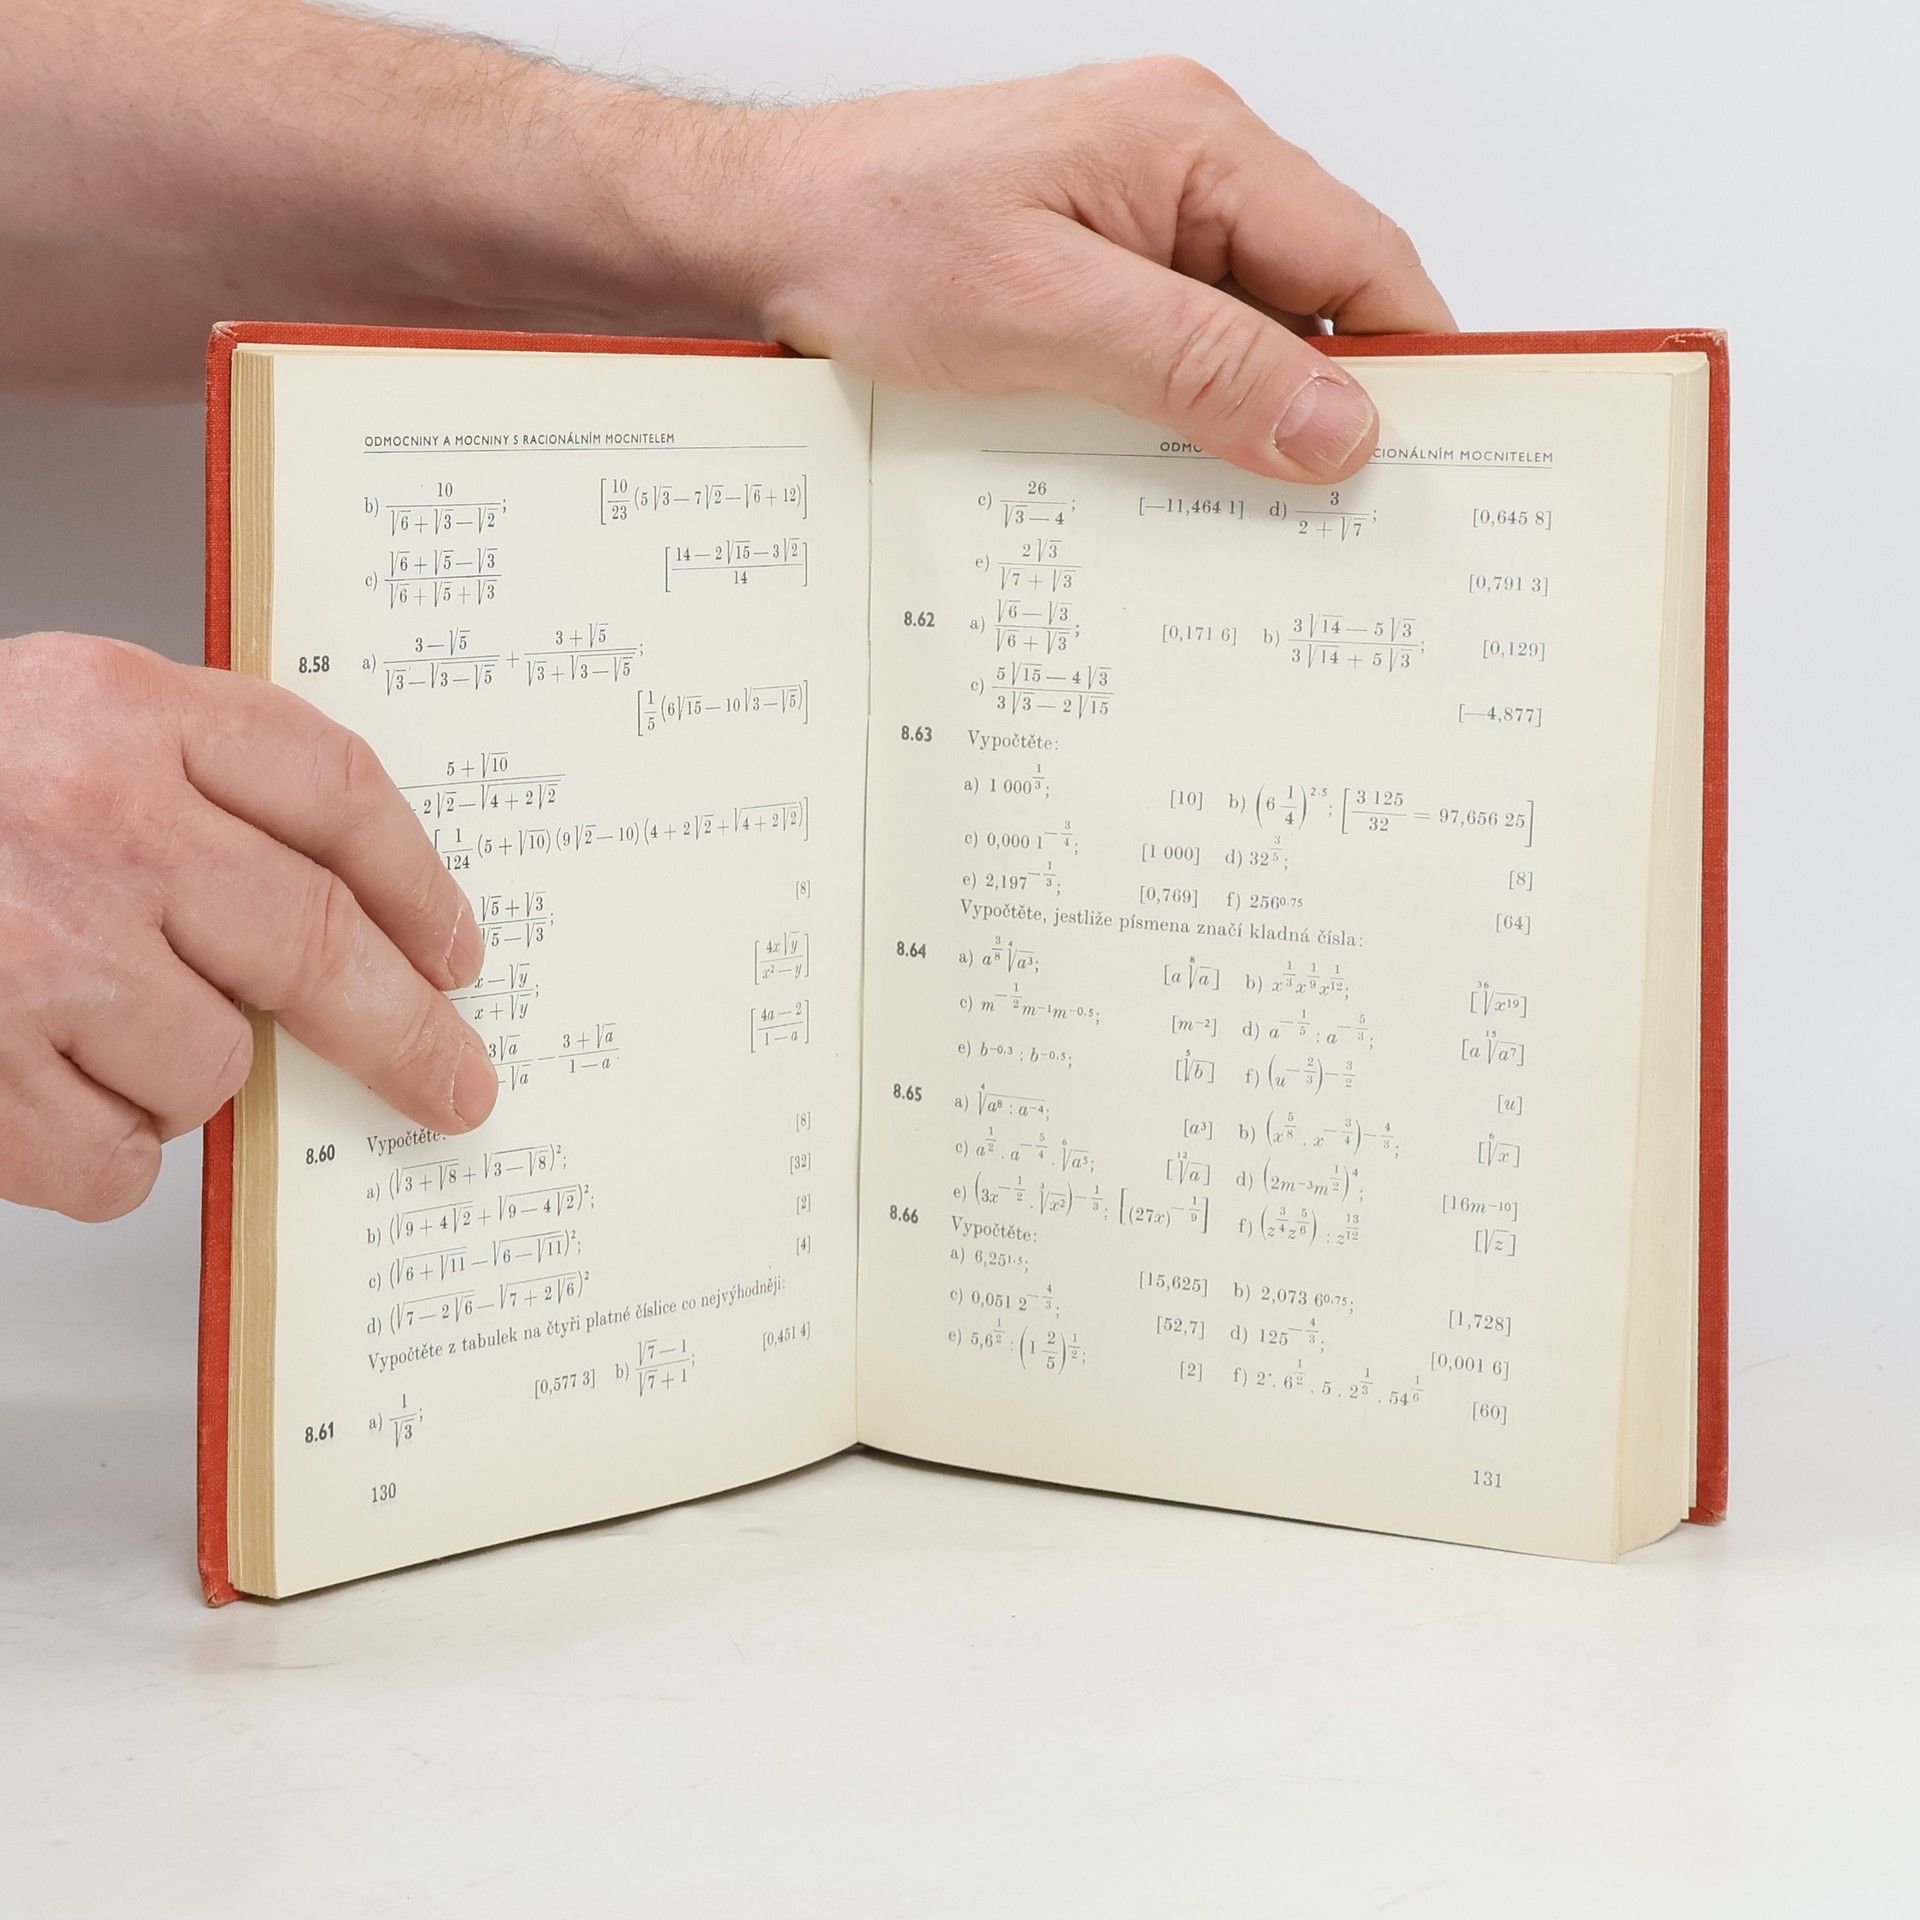 ODMOCNINY A MOCNINY S RACIONÁLNÍM MOCNITELEM
b) 10/(√6 + √3 — √2); [10/23 (5√3 — 7√2 — √6 + 12)]
c) (√6 + √5 — √3)/(√6 + √5 + √3) [(14 — 2√15 — 3√2)/14]
8.58 a) (3 — √5)/(√3 — √(3 — √5)) + (3 + √5)/(√3 + √(3 — √5));
[1/5 (6√15 — 10√(3 — √5))]
5 + √10
2√2 — √(4 + 2√2)
[1/124 (5 + √10) (9√2 — 10) (4 + 2√2 + √(4 + 2√2))]
(√5 + √3)/(√5 — √3); [8]
(x — √y)/(x + √y); [4x√y/(x² — y)]
3√a — (3 + √a)/(1 — a) [(4a — 2)/(1 — a)]
— √a
8.60 Vypočtěte:
a) (√(3 + √8) + √(3 — √8))²; [8]
b) (√(9 + 4√2) + √(9 — 4√2))²; [32]
c) (√(6 + √11) — √(6 — √11))²; [2]
d) (√(7 — 2√6) — √(7 + 2√6))² [4]
Vypočtěte z tabulek na čtyři platné číslice co nejvýhodněji:
8.61 a) 1/√3; [0,577 3] b) (√7 — 1)/(√7 + 1); [0,451 4]
130
CIONÁLNÍM MOCNITELEM
c) 26/(√3 — 4); [—11,464 1] d) 3/(2 + √7); [0,645 8]
e) 2√3/(√7 + √3) [0,791 3]
8.62 a) (√6 — √3)/(√6 + √3); [0,171 6] b) (3√14 — 5√3)/(3√14 + 5√3); [0,129]
c) (5√15 — 4√3)/(3√3 — 2√15) [—4,877]
8.63 Vypočtěte:
a) 1 000^(1/3); [10] b) (6 1/4)^2·5; [3 125/32 = 97,656 25]
c) 0,000 1^(—3/4); [1 000] d) 32^(3/5); [8]
e) 2,197^(—1/3); [0,769] f) 256^0,75 [64]
Vypočtěte, jestliže písmena značí kladná čísla:
8.64 a) a^(3/8) ⁴√a³; [a ⁸√a] b) x^(1/3) x^(1/9) x^(1/12); [³⁶√x¹⁹]
c) m^(—1/2) m^—1 m^—0,5; [m^—2] d) a^(—1/5) : a^(—5/3); [a ¹⁵√a⁷]
e) b^—0,3 : b^—0,5; [⁵√b] f) (u^(—2/3))^(—3/2) [u]
8.65 a) ⁴√(a⁸ : a^—4); [a³] b) (x^(5/8) . x^(—3/4))^(—4/3); [⁶√x]
c) a^(1/2) . a^(—5/4) . ⁶√a⁵; [¹²√a] d) (2m^—3 m^(1/2))⁴; [16m^—10]
e) (3x^(—1/2) . ³√x²)^(—1/3); [(27x)^(—1/9)] f) (z^(3/4) z^(5/6)) : z^(13/12) [√z]
8.66 Vypočtěte:
a) 6,25^1,5; [15,625] b) 2,073 6^0,75; [1,728]
c) 0,051 2^(—4/3); [52,7] d) 125^(—4/3); [0,001 6]
e) 5,6^(1/2) : (1 2/5)^(1/2); [2] f) 2 . 6^(1/2) . 5 . 2^(1/3) . 54^(1/6) [60]
131